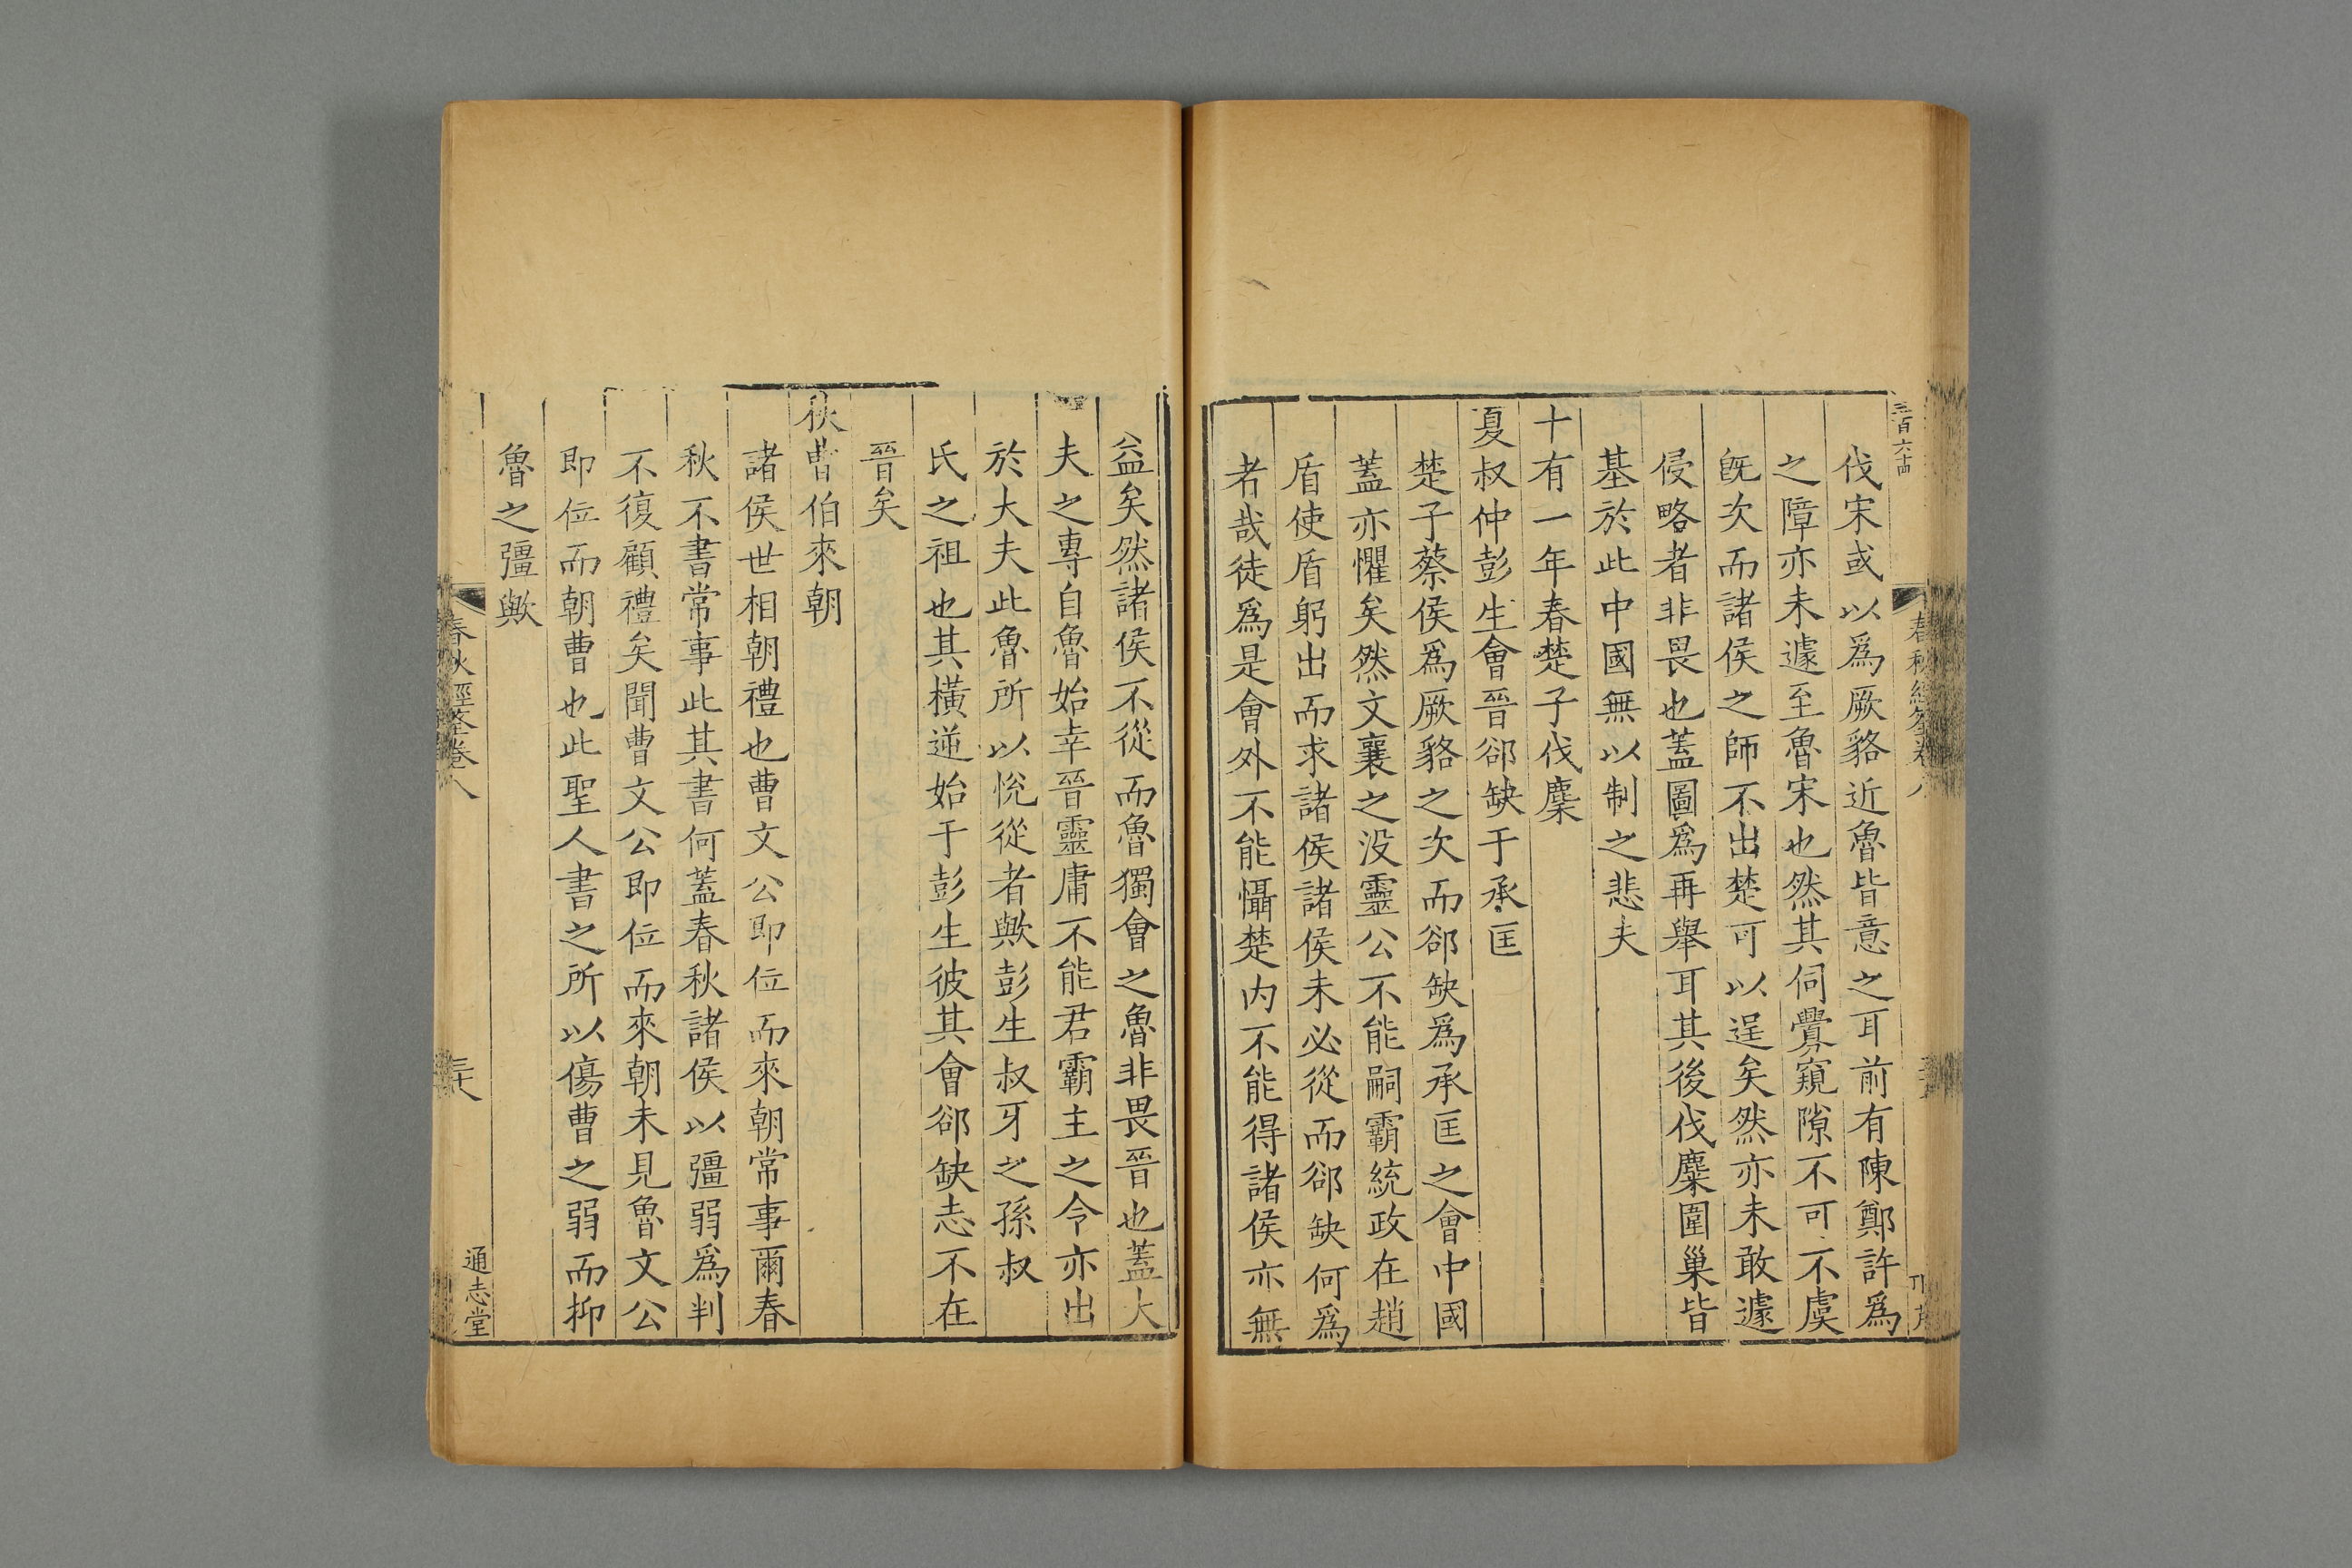 伐宋或以爲厥貉近魯皆意之耳前有陳鄭許爲
之障亦未遽至魯宋也然其伺釁窺隙不可不虞
旣次而諸侯之師不出楚可以逞矣然亦未敢遽
侵略者非畏也蓋圖爲再舉耳其後伐麋圍巢皆
基於此中國無以制之悲夫
十有一年春楚子伐麋
夏叔仲彭生會晉郤缺于承匡
楚子蔡侯爲厥貉之次而郤缺爲承匡之會中國
蓋亦懼矣然文襄之没靈公不能嗣霸統政在趙
盾使盾躬出而求諸侯諸侯未必從而郤缺何爲
者哉徒爲是會外不能懾楚内不能得諸侯亦無
益矣然諸侯不從而魯獨會之魯非畏晉也蓋大
夫之專自魯始幸晉靈庸不能君霸主之令亦出
於大夫此魯所以悅從者歟彭生叔牙之孫叔
氏之祖也其橫逆始于彭生彼其會郤缺志不在
晉矣
秋曹伯來朝
諸侯世相朝禮也曹文公即位而來朝常事爾春
秋不書常事此其書何蓋春秋諸侯以彊弱爲判
不復顧禮矣聞曹文公即位而來朝未見魯文公
即位而朝曹也此聖人書之所以傷曹之弱而抑
魯之彊歟
春秋經筌卷八
通志堂